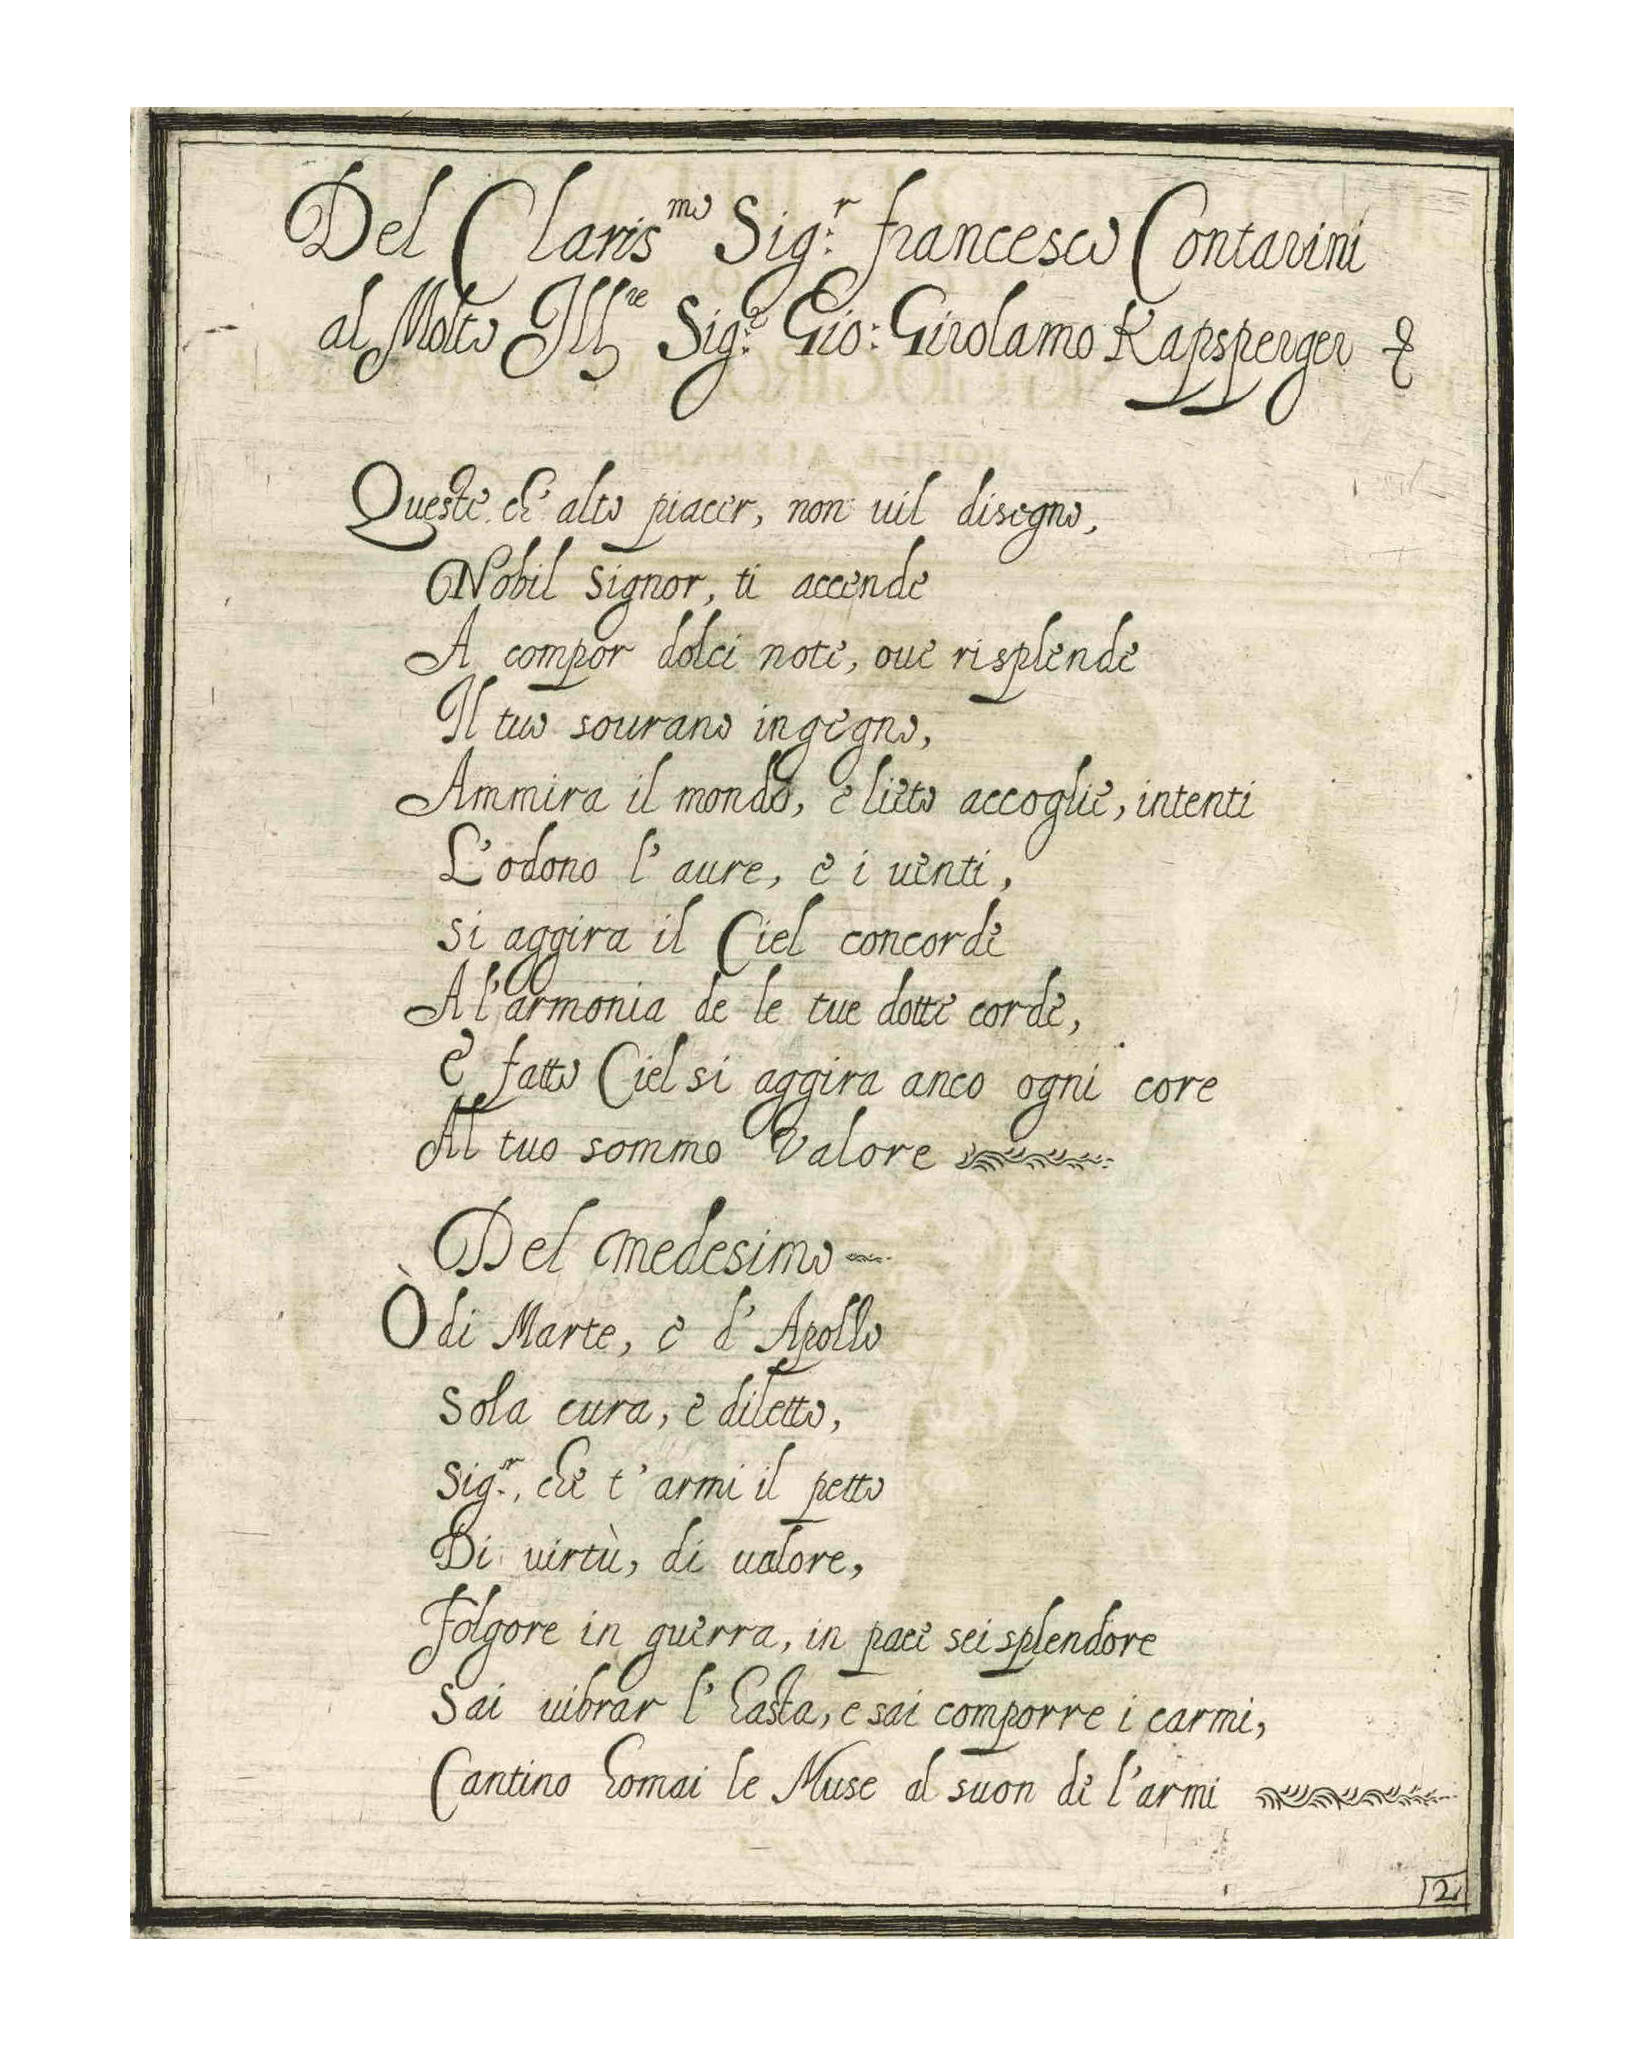 Del Claris^mo Sig:^r francesco Contarini
al Molto Ill^re Sig:^r Gio: Girolamo Kapsperger
Queste ch' alto piacer, non uil disegno,
Nobil signor, ti accende
A compor dolci note, oue risplende
Il tuo sourano ingegno,
Ammira il mondo, e lieto accoglie, intenti
L'odono l'aure, e i uenti,
si aggira il Ciel concorde
A l'armonia de le tue dotte corde,
E fatto Ciel si aggira anco ogni core
Al tuo sommo valore
Del medesimo
Ò di Marte, e d'Apollo
sola cura, e diletto,
sig.^r, che t'armi il petto
Di uirtù, di ualore,
Folgore in guerra, in pace sei splendore
sai uibrar l'hasta, e sai comporre i carmi,
Cantino homai le Muse al suon de l'armi
2